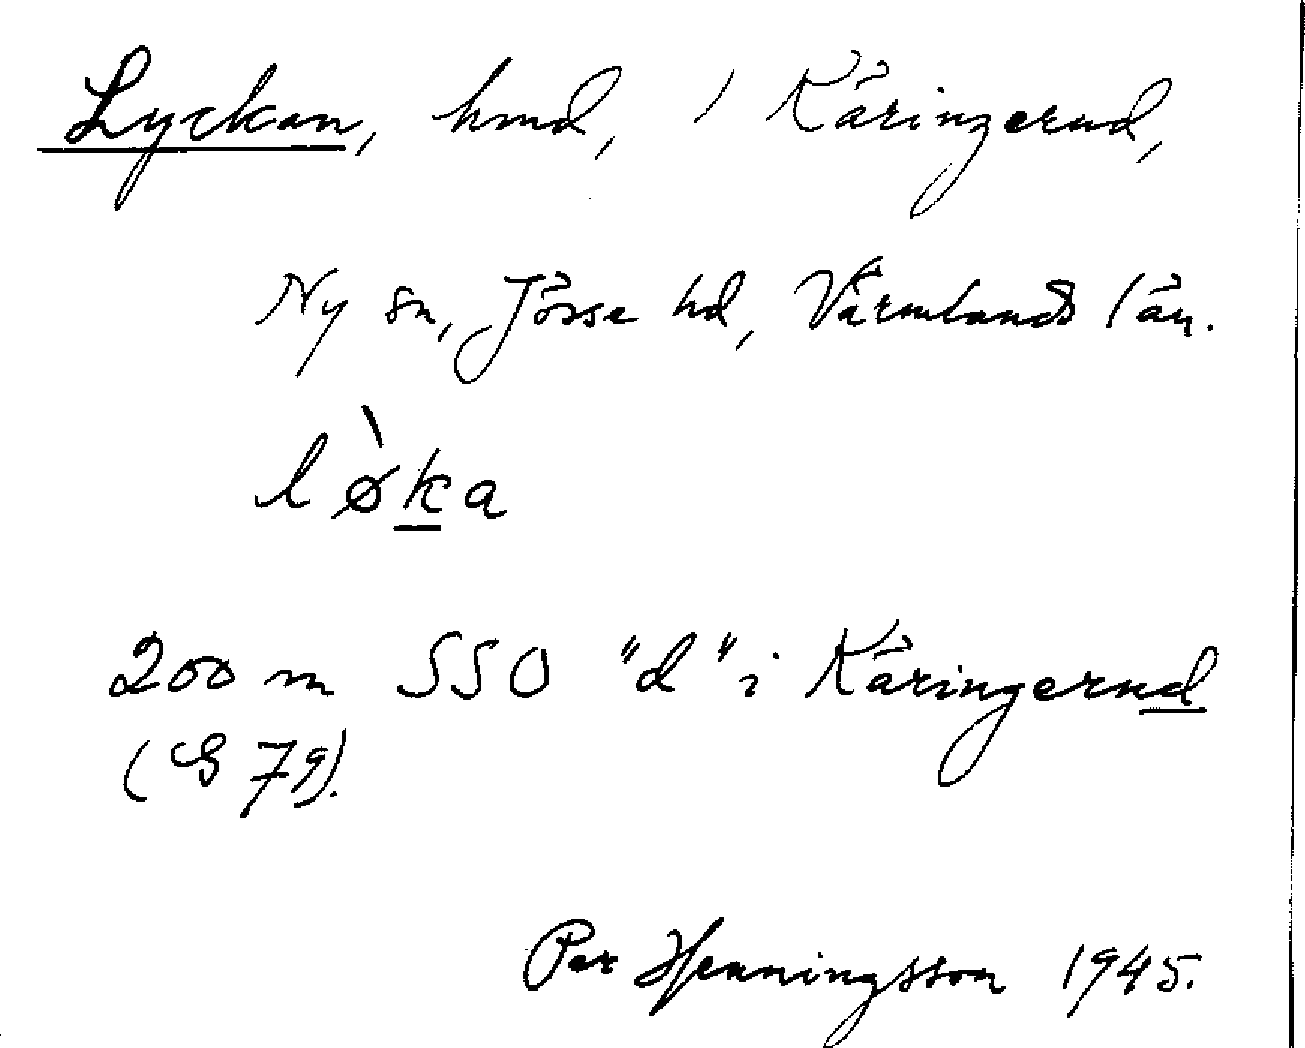 Lyckan, hmd, i Käringerud,
Ny sn, Jösse hd, Värmlands län.
lø̀ka
200 m SSO "d" i Käringerud
(S 79).
Per Henningsson 1945.